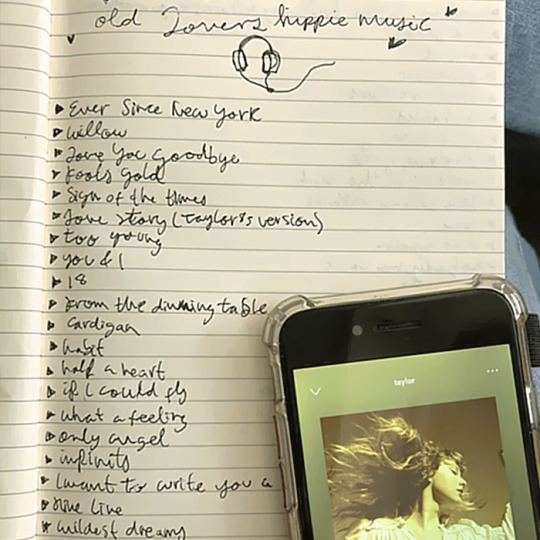 old Lovers hippie music
Ever Since New York
willow
Love You Goodbye
Fools gold
Sign of the times
Love story (Taylor's version)
too young
you & I
18
From the dinning table
Cardigan
habit
half a heart
if I could fly
what a feeling
only angel
infinity
I want to write you a
wildest dreams
taylor